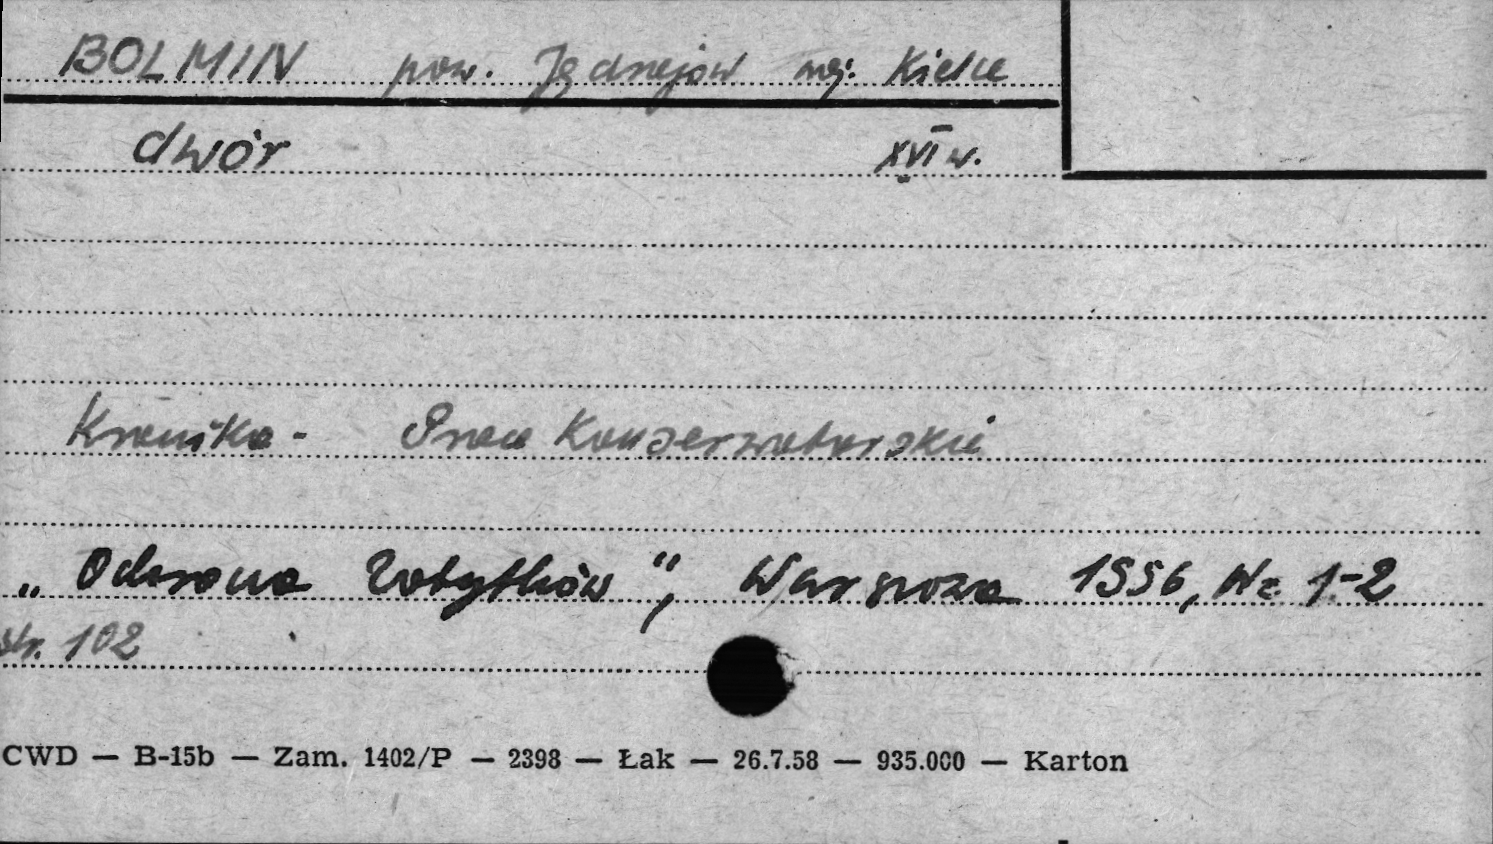 BOLMIN pow. Jędrzejów woj. Kielce
dwór XVI w.
Kronika - Prace Konserwatorskie
„Ochrona Zabytków", Warszawa 1956, Nr 1-2
str. 102
CWD — B-15b — Zam. 1402/P — 2398 — Łak — 26.7.58 — 935.000 — Karton